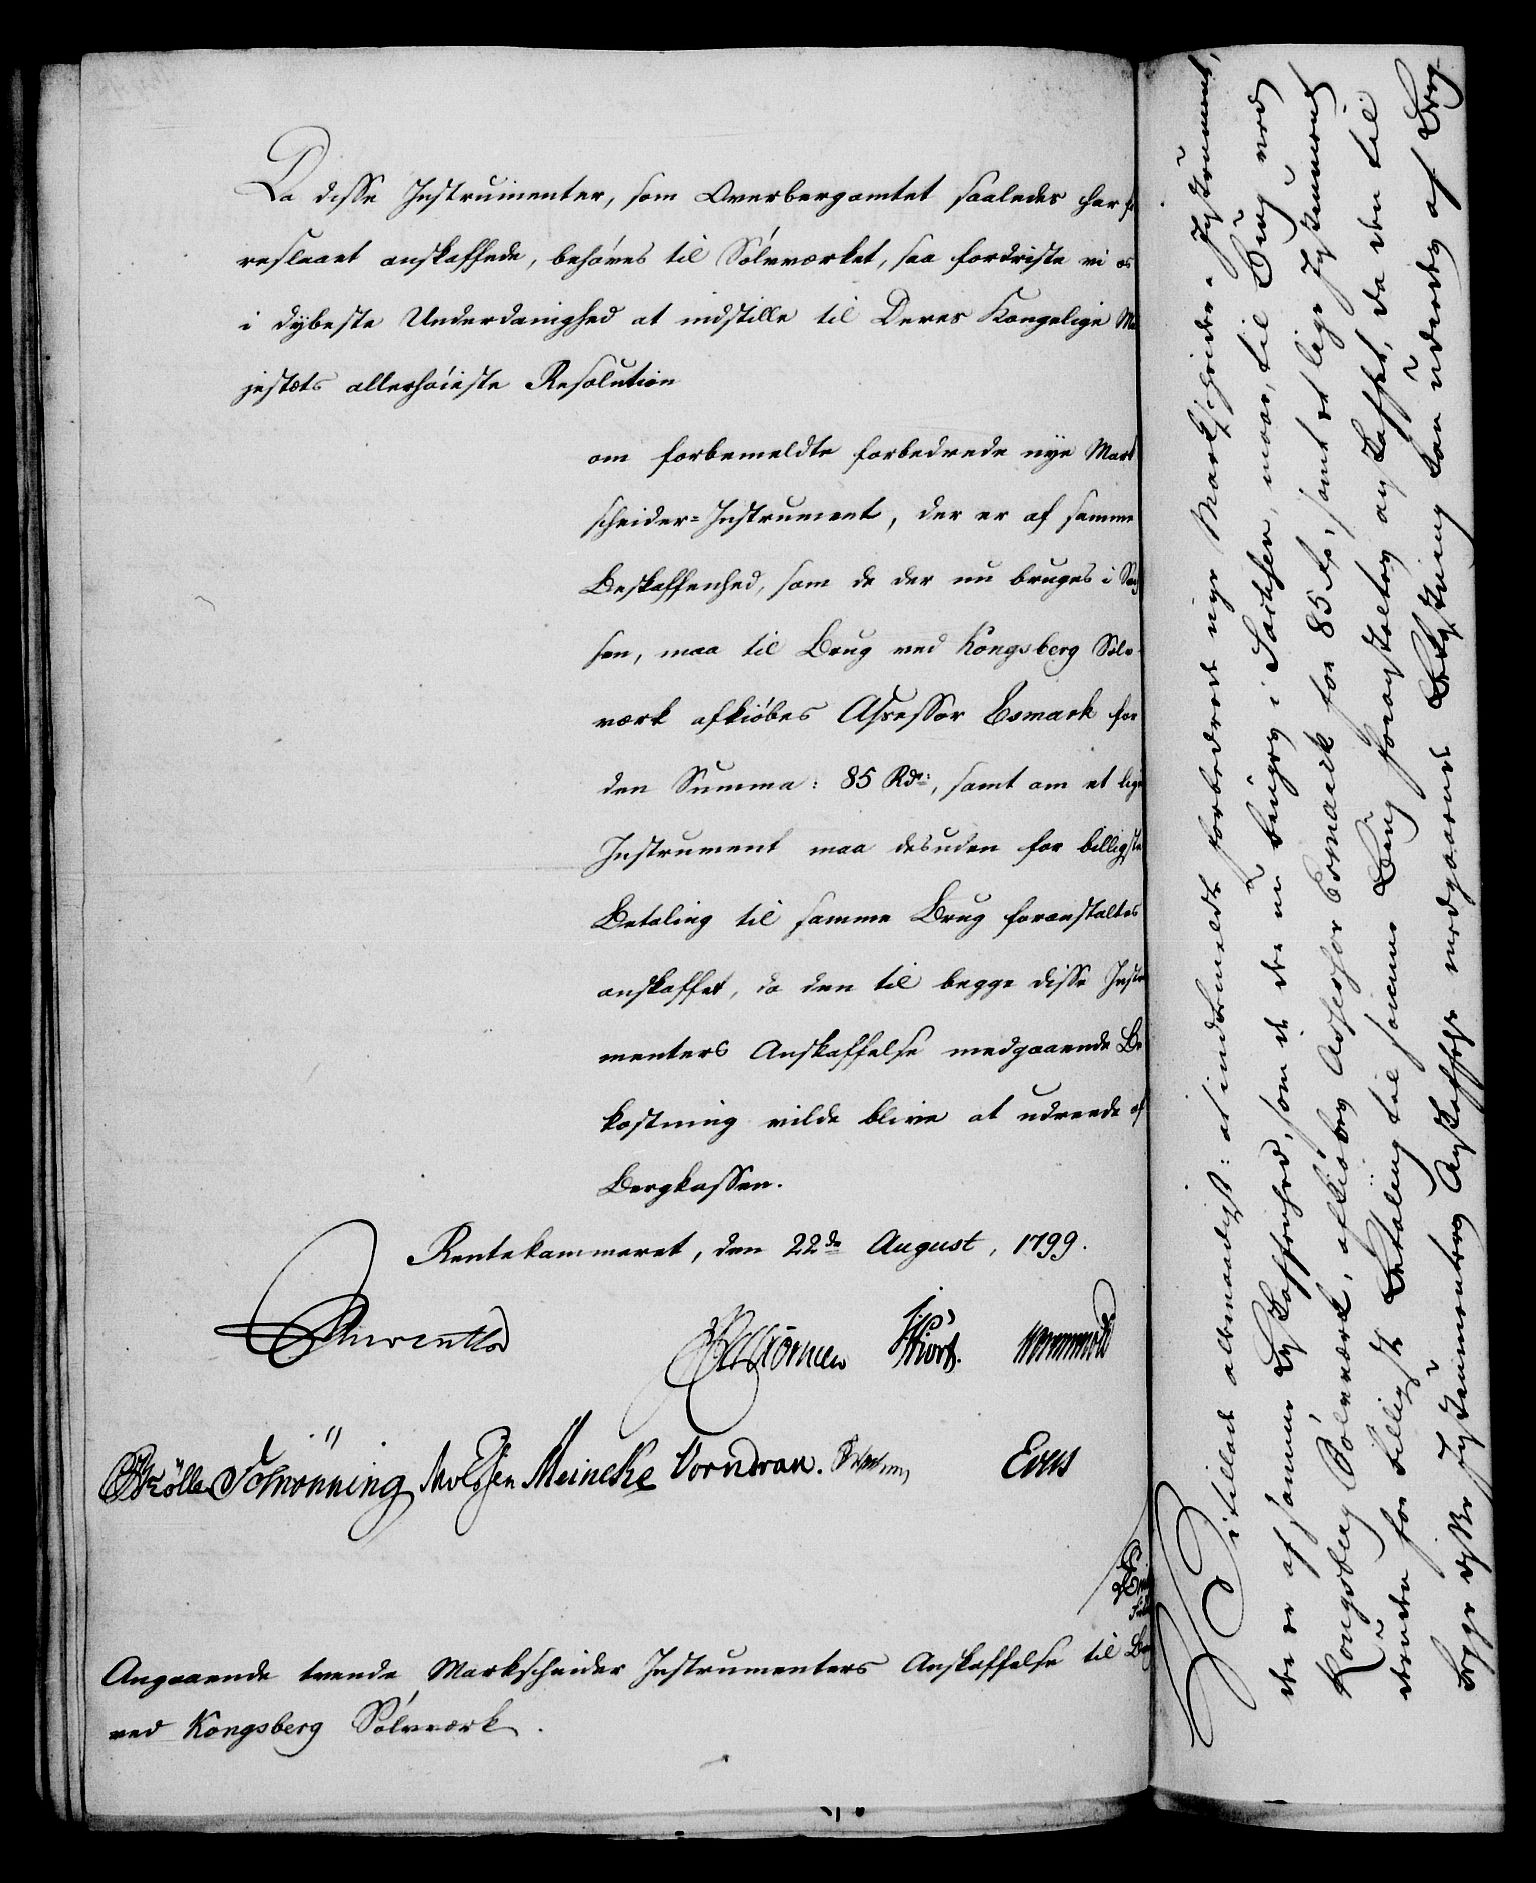 Da disse Instrumenter, som Overbergamtet saaledes har fo
reslaaet anskaffede, behøves til Sølvværket, saa fordriste vi os
i dybeste Underdanighed at indstille til Deres Kongelige Ma
jestæts allerhøieste Resolution
om forbemeldte forbedrede nye Mark
scheider-Instrument, der er af samme
Beskaffenhed, som de der nu bruges i Sax
sen, maa til Brug ved Kongsberg Sølv-
værk afkiøbes Assessor Esmark for
den Summa: 85 Rdr:, samt om et lige
Instrument maa desuden for billigste
Betaling til samme Brug foranstaltes
anskaffet, da den til begge disse Instru
menters Anskaffelse medgaaende Be
kostning vilde blive at udreede af
Bergkassen.
Rentekammeret, den 22de August, 1799.
Schønning Meincke Vorndran. Evers
Angaaende tvende Markscheider Instrumenters Anskaffelse til Brug
ved Kongsberg Sølvværk.
Vi tillade allernaadigst: at indbemeldte forbedrede nye Markscheider-Instrument,
der er af samme Beskaffenhed, som de der nu bruges i Sachsen, maae, til Brug ved
Kongsberg Sølvværk, afkiøbes Assessor Esmark for 85 Rd, samt et lige Instrument
desuden for billigste Betaling til samme Brug foranstaltes anskaffet, da den til
begge disse Instrumenters Anskaffelse medgaaende Bekostning kan udredes af Berg-